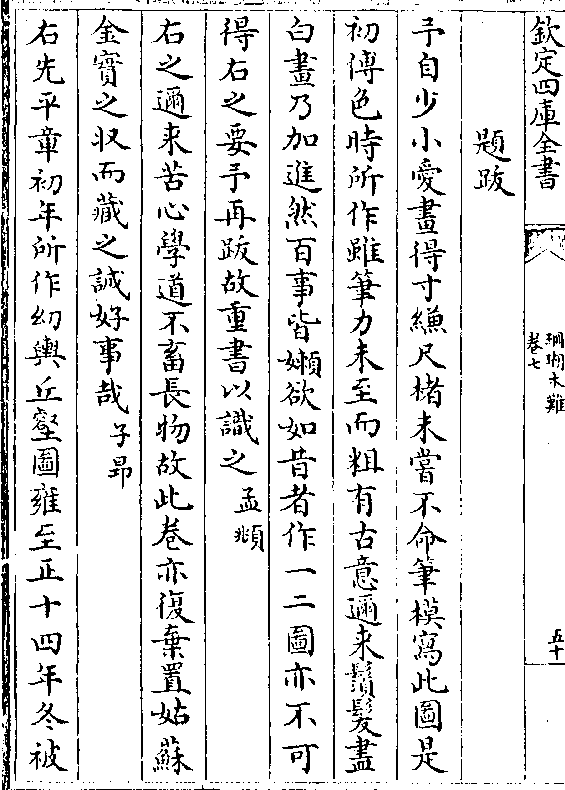 欽定四庫全書
珊瑚木難
卷七
五十
題跋
予自少小愛畫得寸縑尺楮未嘗不命筆模寫此圖是
初傅色時所作雖筆力未至而粗有古意邇来鬚髮盡
白畫乃加進然百事皆嬾欲如昔者作一二圖亦不可
得右之要予再跋故重書以識之孟頫
右之邇来苦心學道不畜長物故此卷亦復棄置姑蘇
金寳之収而藏之誠好事哉子昻
右先平章初年所作幼輿丘壑圖雍至正十四年冬被